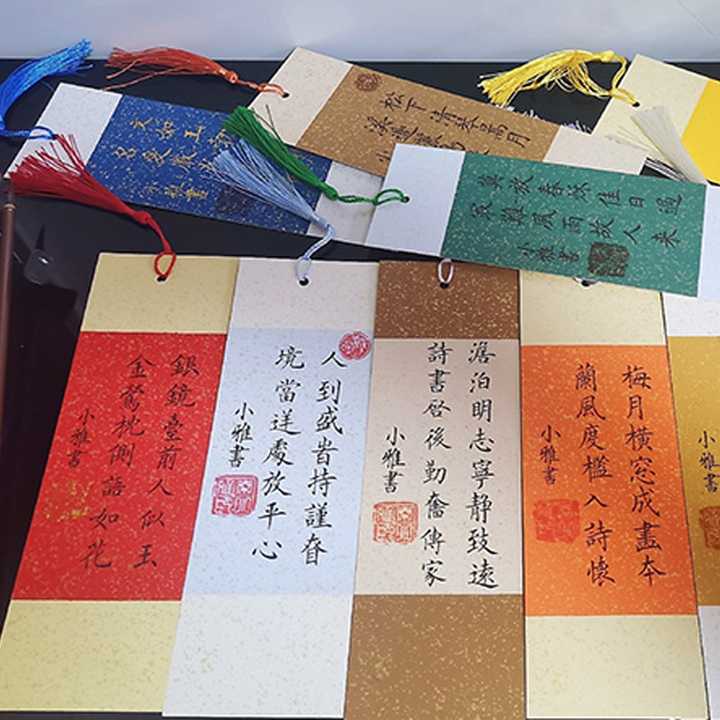 文如玉
小雅書
松下清琴
月
莫放春秋佳日過
最難風雨故人来
小雅書
銀鏡臺前人似玉
金鶯枕側語如花
小雅書
人到盛旹持謹昚
境當逆處放平心
小雅書
澹泊明志寧靜致遠
詩書啓後勤奮傳家
小雅書
梅月橫窓成畫本
蘭風度檻入詩懷
小雅書
小雅書